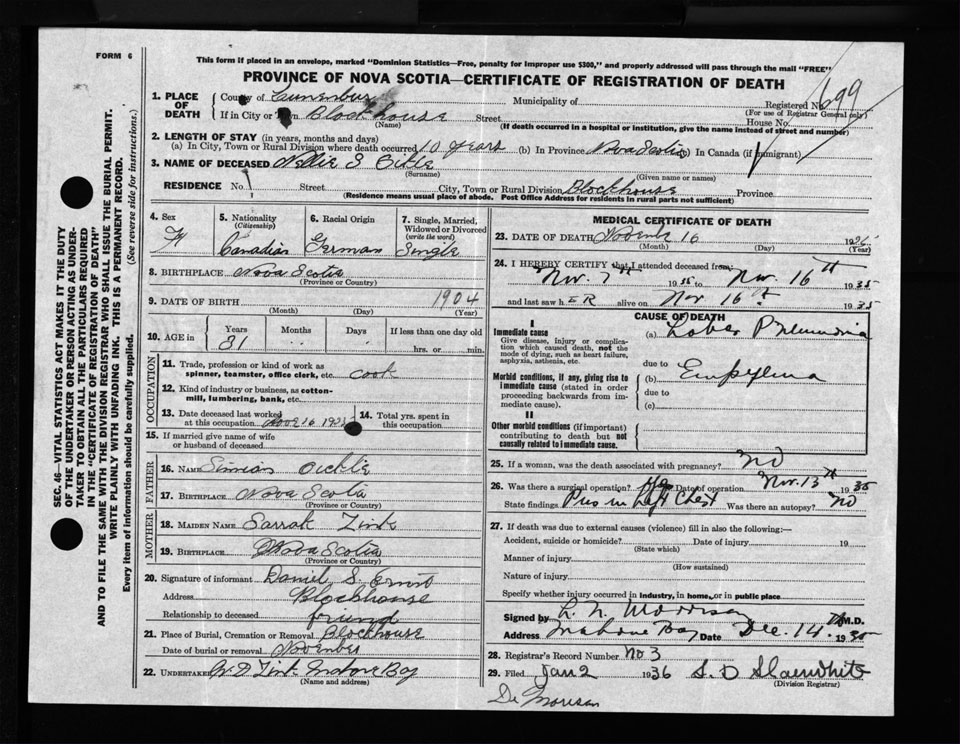 FORM 6
This form if placed in an envelope, marked "Dominion Statistics—Free, penalty for improper use $300," and properly addressed will pass through the mail "FREE"
PROVINCE OF NOVA SCOTIA—CERTIFICATE OF REGISTRATION OF DEATH
1. PLACE OF DEATH
County of Lunenburg Municipality of Registered No. 699
(For use of Registrar General only)
If in City or Town Blockhouse Street House No.
(Name) (If death occurred in a hospital or institution, give the name instead of street and number)
2. LENGTH OF STAY (in years, months and days)
(a) In City, Town or Rural Division where death occurred 10 years (b) In Province Nova Scotia (c) In Canada (if immigrant)
3. NAME OF DECEASED Nellie S
(Surname) (Given name or names)
RESIDENCE No. Street City, Town or Rural Division Blockhouse Province
(Residence means usual place of abode. Post Office Address for residents in rural parts not sufficient)
4. Sex
F
5. Nationality
(Citizenship)
Canadian
6. Racial Origin
German
7. Single, Married, Widowed or Divorced
(write the word)
Single
8. BIRTHPLACE Nova Scotia
(Province or Country)
9. DATE OF BIRTH 1904
(Month) (Day) (Year)
10. AGE in Years Months Days If less than one day old
31 hrs. or min.
OCCUPATION
11. Trade, profession or kind of work as spinner, teamster, office clerk, etc. cook
12. Kind of industry or business, as cotton-mill, lumbering, bank, etc.
13. Date deceased last worked at this occupation
14. Total yrs. spent in this occupation
15. If married give name of wife or husband of deceased
FATHER
16. NAME Simeon Oickle
17. BIRTHPLACE Nova Scotia
(Province or Country)
MOTHER
18. MAIDEN NAME Sarrah Zink
19. BIRTHPLACE Nova Scotia
(Province or Country)
20. Signature of informant Daniel S. Ernst
Address Blockhouse
Relationship to deceased friend
21. Place of Burial, Cremation or Removal Blockhouse
Date of burial or removal November
22. UNDERTAKER W D Zink Mahone Bay
(Name and address)
MEDICAL CERTIFICATE OF DEATH
23. DATE OF DEATH 16 19
(Month) (Day) (Year)
24. I HEREBY CERTIFY that I attended deceased from:
Nov. 7th 1935 to Nov. 16th 1935
and last saw h ER alive on Nov 16th 1935
CAUSE OF DEATH
I
Immediate cause
Give disease, injury or complication which caused death, not the mode of dying, such as heart failure, asphyxia, asthenia, etc.
(a) Lobar Pneumonia
due to
Morbid conditions, if any, giving rise to immediate cause (stated in order proceeding backwards from immediate cause).
(b) Empyema
due to
(c)
II
Other morbid conditions (if important) contributing to death but not causally related to immediate cause.
25. If a woman, was the death associated with pregnancy? no
26. Was there a surgical operation? yes Date of operation Nov. 13th 1935
State findings Pus in Left Chest Was there an autopsy? No
27. If death was due to external causes (violence) fill in also the following:—
Accident, suicide or homicide? Date of injury 19
(State which)
Manner of injury
(How sustained)
Nature of injury
Specify whether injury occurred in industry, in home, or in public place
Signed by Morrison M.D.
Address Mahone Bay Date Dec. 14th 1935
28. Registrar's Record Number no 3
29. Filed Jan 2 1936 S. D Slaunwhite
(Division Registrar)
Dr Morrison
SEC. 46—VITAL STATISTICS ACT MAKES IT THE DUTY
OF THE UNDERTAKER OR PERSON ACTING AS UNDER-
TAKER TO OBTAIN ALL THE PARTICULARS REQUIRED
IN THE "CERTIFICATE OF REGISTRATION OF DEATH"
AND TO FILE THE SAME WITH THE DIVISION REGISTRAR WHO SHALL ISSUE THE BURIAL PERMIT.
WRITE PLAINLY WITH UNFADING INK. THIS IS A PERMANENT RECORD.
Every item of information should be carefully supplied. (See reverse side for instructions.)